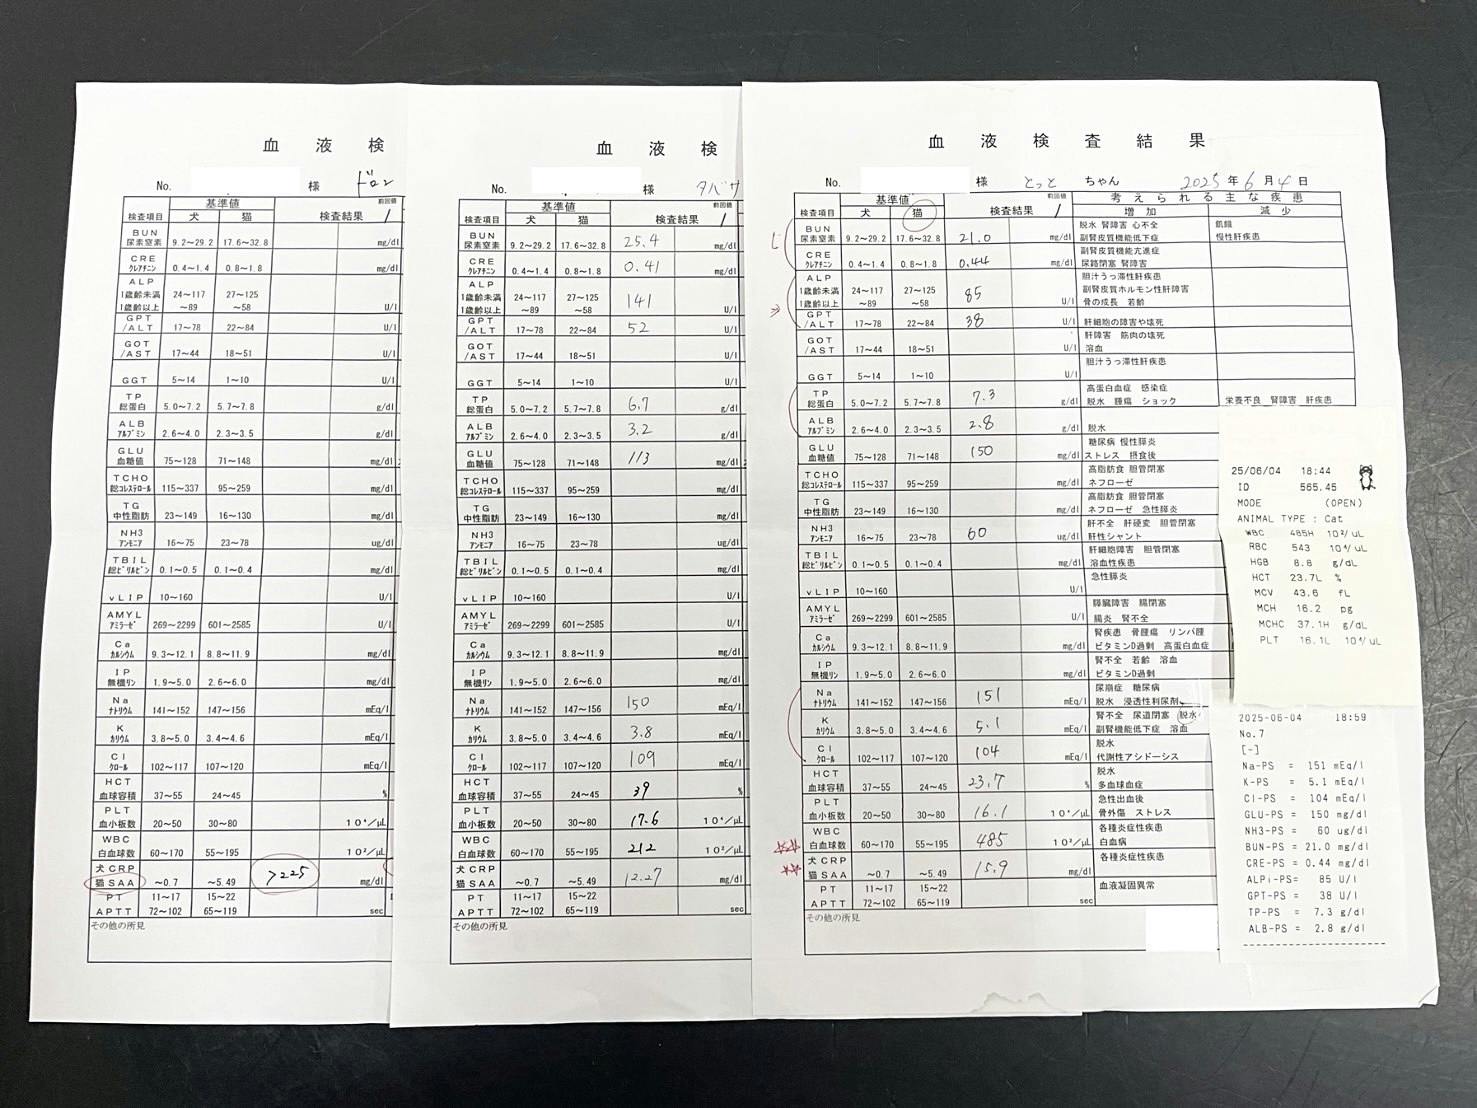 血 液 検
No. 様 ドロン
検査項目 基準値 検査結果 前回値 /
犬 猫
BUN 尿素窒素 9.2~29.2 17.6~32.8 mg/dl
CRE クレアチニン 0.4~1.4 0.8~1.8 mg/dl
ALP
1歳齢未満 24~117 27~125
1歳齢以上 ~89 ~58 U/l
GPT /ALT 17~78 22~84 U/l
GOT /AST 17~44 18~51 U/l
GGT 5~14 1~10 U/l
TP 総蛋白 5.0~7.2 5.7~7.8 g/dl
ALB アルブミン 2.6~4.0 2.3~3.5 g/dl
GLU 血糖値 75~128 71~148 mg/dl
TCHO 総コレステロール 115~337 95~259 mg/dl
TG 中性脂肪 23~149 16~130 mg/dl
NH3 アンモニア 16~75 23~78 ug/dl
TBIL 総ビリルビン 0.1~0.5 0.1~0.4 mg/dl
vLIP 10~160 U/l
AMYL アミラーゼ 269~2299 601~2585 U/l
Ca カルシウム 9.3~12.1 8.8~11.9 mg/dl
IP 無機リン 1.9~5.0 2.6~6.0 mg/dl
Na ナトリウム 141~152 147~156 mEq/l
K カリウム 3.8~5.0 3.4~4.6 mEq/l
Cl クロール 102~117 107~120 mEq/l
HCT 血球容積 37~55 24~45 %
PLT 血小板数 20~50 30~80 10⁴/μL
WBC 白血球数 60~170 55~195 10²/μL
犬CRP 猫SAA ~0.7 ~5.49 >225 mg/dl
PT 11~17 15~22
APTT 72~102 65~119 sec
その他の所見
血 液 検
No. 様 タバサ
検査項目 基準値 検査結果 前回値 /
犬 猫
BUN 尿素窒素 9.2~29.2 17.6~32.8 25.4 mg/dl
CRE クレアチニン 0.4~1.4 0.8~1.8 0.41 mg/dl
ALP
1歳齢未満 24~117 27~125 141
1歳齢以上 ~89 ~58 U/l
GPT /ALT 17~78 22~84 52 U/l
GOT /AST 17~44 18~51 U/l
GGT 5~14 1~10 U/l
TP 総蛋白 5.0~7.2 5.7~7.8 6.7 g/dl
ALB アルブミン 2.6~4.0 2.3~3.5 3.2 g/dl
GLU 血糖値 75~128 71~148 113 mg/dl
TCHO 総コレステロール 115~337 95~259 mg/dl
TG 中性脂肪 23~149 16~130 mg/dl
NH3 アンモニア 16~75 23~78 ug/dl
TBIL 総ビリルビン 0.1~0.5 0.1~0.4 mg/dl
vLIP 10~160 U/l
AMYL アミラーゼ 269~2299 601~2585 U/l
Ca カルシウム 9.3~12.1 8.8~11.9 mg/dl
IP 無機リン 1.9~5.0 2.6~6.0 mg/dl
Na ナトリウム 141~152 147~156 150 mEq/l
K カリウム 3.8~5.0 3.4~4.6 3.8 mEq/l
Cl クロール 102~117 107~120 109 mEq/l
HCT 血球容積 37~55 24~45 39 %
PLT 血小板数 20~50 30~80 17.6 10⁴/μL
WBC 白血球数 60~170 55~195 212 10²/μL
犬CRP 猫SAA ~0.7 ~5.49 12.27 mg/dl
PT 11~17 15~22
APTT 72~102 65~119 sec
その他の所見
血 液 検 査 結 果
No. 様 とっと ちゃん 2025 年 6 月 4 日
検査項目 基準値 検査結果 前回値 / 考えられる主な疾患
犬 猫 増加 減少
BUN 尿素窒素 9.2~29.2 17.6~32.8 21.0 mg/dl 脱水 腎障害 心不全 副腎皮質機能低下症 飢餓 慢性肝疾患
CRE クレアチニン 0.4~1.4 0.8~1.8 0.44 mg/dl 副腎皮質機能亢進症 尿路閉塞 腎障害
ALP 胆汁うっ滞性肝疾患
1歳齢未満 24~117 27~125 85 副腎皮質ホルモン性肝障害
1歳齢以上 ~89 ~58 U/l 骨の成長 若齢
GPT /ALT 17~78 22~84 38 U/l 肝細胞の障害や壊死
GOT /AST 17~44 18~51 U/l 肝障害 筋肉の壊死 溶血
GGT 5~14 1~10 U/l 胆汁うっ滞性肝疾患
TP 総蛋白 5.0~7.2 5.7~7.8 7.3 g/dl 高蛋白血症 感染症 脱水 腫瘍 ショック 栄養不良 腎障害 肝疾患
ALB アルブミン 2.6~4.0 2.3~3.5 2.8 g/dl 脱水
GLU 血糖値 75~128 71~148 150 mg/dl 糖尿病 慢性膵炎 ストレス 摂食後
TCHO 総コレステロール 115~337 95~259 mg/dl 高脂肪食 胆管閉塞 ネフローゼ
TG 中性脂肪 23~149 16~130 mg/dl 高脂肪食 胆管閉塞 ネフローゼ 急性膵炎
NH3 アンモニア 16~75 23~78 60 ug/dl 肝不全 肝硬変 胆管閉塞 肝性シャント
TBIL 総ビリルビン 0.1~0.5 0.1~0.4 mg/dl 肝細胞障害 胆管閉塞 溶血性疾患
vLIP 10~160 U/l 急性膵炎
AMYL アミラーゼ 269~2299 601~2585 U/l 膵臓障害 腸閉塞 腸炎 腎不全
Ca カルシウム 9.3~12.1 8.8~11.9 mg/dl 腎疾患 骨腫瘍 リンパ腫 ビタミンD過剰 高蛋白血症
IP 無機リン 1.9~5.0 2.6~6.0 mg/dl 腎不全 若齢 溶血 ビタミンD過剰
Na ナトリウム 141~152 147~156 151 mEq/l 尿崩症 糖尿病 脱水 浸透性利尿剤
K カリウム 3.8~5.0 3.4~4.6 5.1 mEq/l 腎不全 尿道閉塞 脱水 副腎機能低下症 溶血
Cl クロール 102~117 107~120 104 mEq/l 脱水 代謝性アシドーシス
HCT 血球容積 37~55 24~45 23.7 % 脱水 多血球血症
PLT 血小板数 20~50 30~80 16.1 10⁴/μL 急性出血後 骨外傷 ストレス
WBC 白血球数 60~170 55~195 485 10²/μL 各種炎症性疾患 白血病
犬CRP 猫SAA ~0.7 ~5.49 15.9 mg/dl 各種炎症性疾患
PT 11~17 15~22 血液凝固異常
APTT 72~102 65~119 sec
その他の所見
25/06/04 18:44
ID 565.45
MODE (OPEN)
ANIMAL TYPE : Cat
WBC 485H 10²/uL
RBC 543 10⁴/uL
HGB 8.8 g/dL
HCT 23.7L %
MCV 43.6 fL
MCH 16.2 pg
MCHC 37.1H g/dL
PLT 16.1L 10⁴/uL
2025-06-04 18:59
No.7
[-]
Na-PS = 151 mEq/l
K-PS = 5.1 mEq/l
Cl-PS = 104 mEq/l
GLU-PS = 150 mg/dl
NH3-PS = 60 ug/dl
BUN-PS = 21.0 mg/dl
CRE-PS = 0.44 mg/dl
ALPi-PS= 85 U/l
GPT-PS = 38 U/l
TP-PS = 7.3 g/dl
ALB-PS = 2.8 g/dl